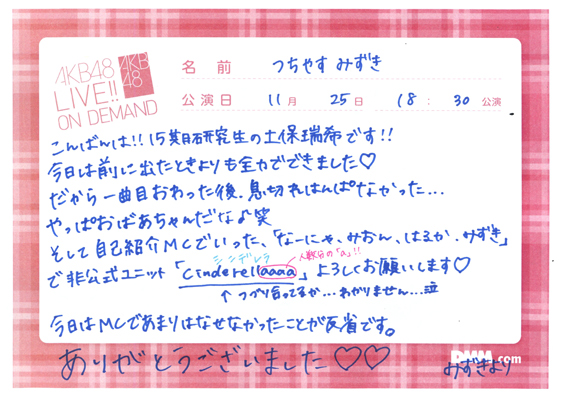 AKB48
LIVE!!
ON DEMAND
AKB
48
名 前 つちやす みずき
公演日 11月 25日 18:30 公演
こんばんは!!15期研究生の土保瑞希です!!
今日は前に出たときよりも全力でできました♡
だから一曲目おわった後、息切れはんぱなかった...
やっぱおばあちゃんだな♪笑
そして自己紹介MCでいった、「なーにゃ、みおん、はるか、みずき」
シンデレラ
人数分の「a」!!
で非公式ユニット「cinderellaaaa」よろしくお願いします♡
↑つづり合ってるか...わかりません...泣
今日はMCであまりはなせなかったことが反省です。
ありがとうございました♡♡
DMM.com
みずきより